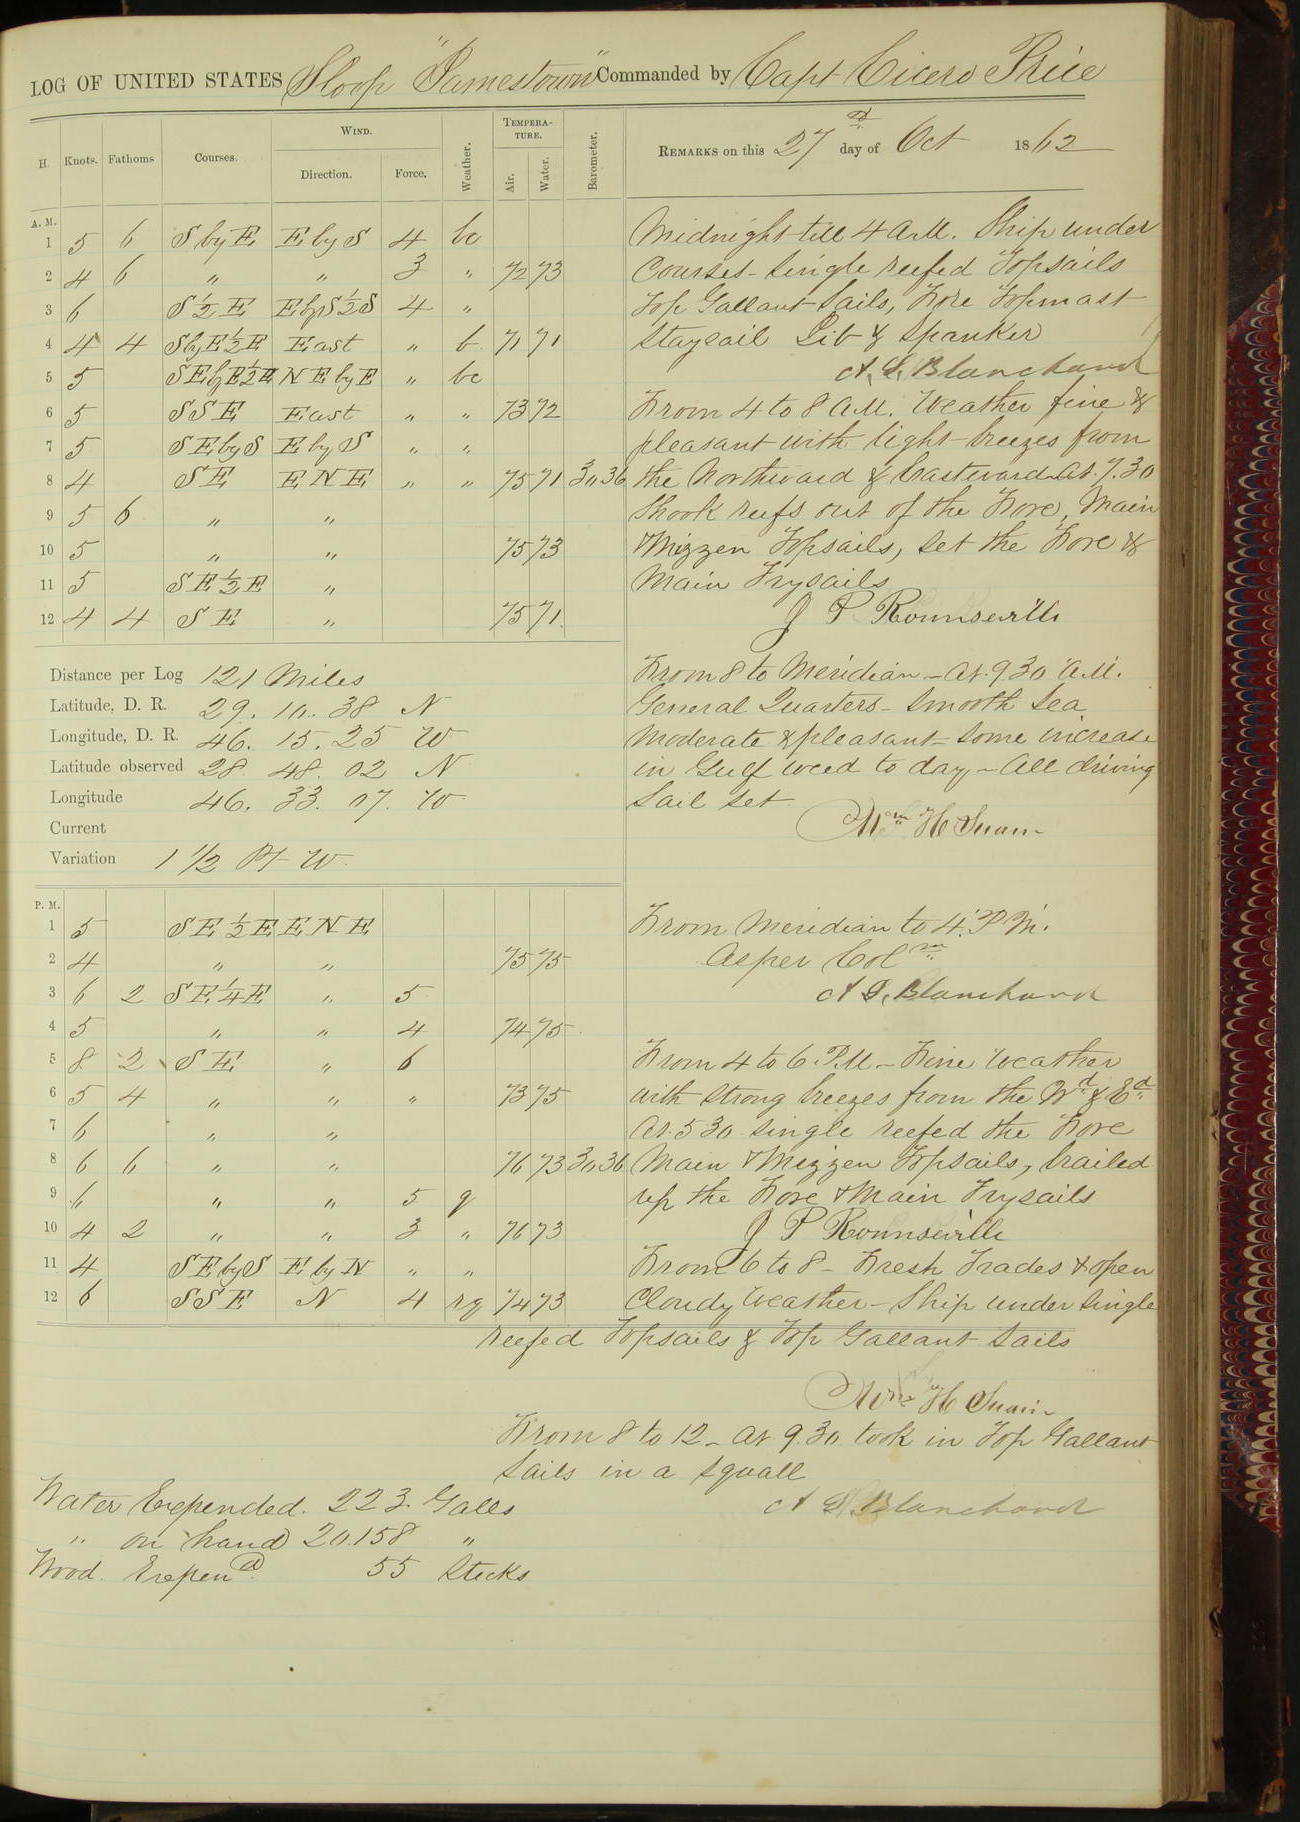 LOG OF UNITED STATES Sloop "Jamestown" Commanded by Capt Cicero Price
H. Knots. Fathoms Courses. WIND. Direction. Force. Weather. TEMPERATURE. Air. Water. Barometer. REMARKS on this 27th day of Oct 1862
A. M.
1 5 6 S by E E by S 4 bc
2 4 6 " " 3 " 72 73
3 6 S ½ E E by S ½ S 4 "
4 4 4 S by E ½ E East " b 71 71
5 5 SE by E ½ E N E by E " bc
6 5 SSE East " " 73 72
7 5 SE by S E by S " "
8 4 SE ENE " " 75 71 30.36
9 5 6 " "
10 5 " " 75 73
11 5 SE ½ E "
12 4 4 SE " 75 71
Midnight till 4 A.M. Ship under
Courses - single reefed Topsails
Top Gallant Sails, Fore Topmast
Staysail Jib & Spanker
A. S. Blanchard
From 4 to 8 A.M. Weather fine &
pleasant with light breezes from
the Northward & Eastward At 7.30
Shook reefs out of the Fore, Main
& Mizzen Topsails, Set the Fore &
Main Trysails
J P Rounsevills
Distance per Log 121 Miles
Latitude, D. R. 29. 10. 38 N
Longitude, D. R. 46. 15. 25 W
Latitude observed 28. 48. 02 N
Longitude 46. 33. 07. W
Current
Variation 1 1/2 Pt W
From 8 to Meridian - At 9.30 A.M.
General Quarters - Smooth Sea
Moderate & pleasant - some increase
in Gulf weed to day - All driving
Sail set
Wm H Swan
P. M.
1 5 SE ½ E ENE
2 4 " " 75 75
3 6 2 SE ¼ E " 5
4 5 " " 4 74 75
5 8 2 SE " 6
6 5 4 " " " 73 75
7 6 " "
8 6 6 " " 76 73 30 36
9 6 " " 5 q
10 4 2 " " 3 " 76 73
11 4 SE by S E by N " "
12 6 SSE N 4 rq 74 73
From Meridian to 4 P.M.
As per Colmn
A S. Blanchard
From 4 to 6 P.M - Fine Weather
with strong breezes from the Nd & Ed
At 5 30 single reefed the Fore
Main & Mizzen Topsails, brailed
up the Fore & Main Trysails
J P Rounsevills
From 6 to 8 - Fresh Trades & open
Cloudy Weather - Ship under single
reefed Topsails & Top Gallant Sails
Wm H Swan
From 8 to 12 - At 9.30 took in Top Gallant
Sails in a squall
A S Blanchard
Water Expended. 223 Galls
" on hand 20.158 "
Wood. Expend 55 Sticks